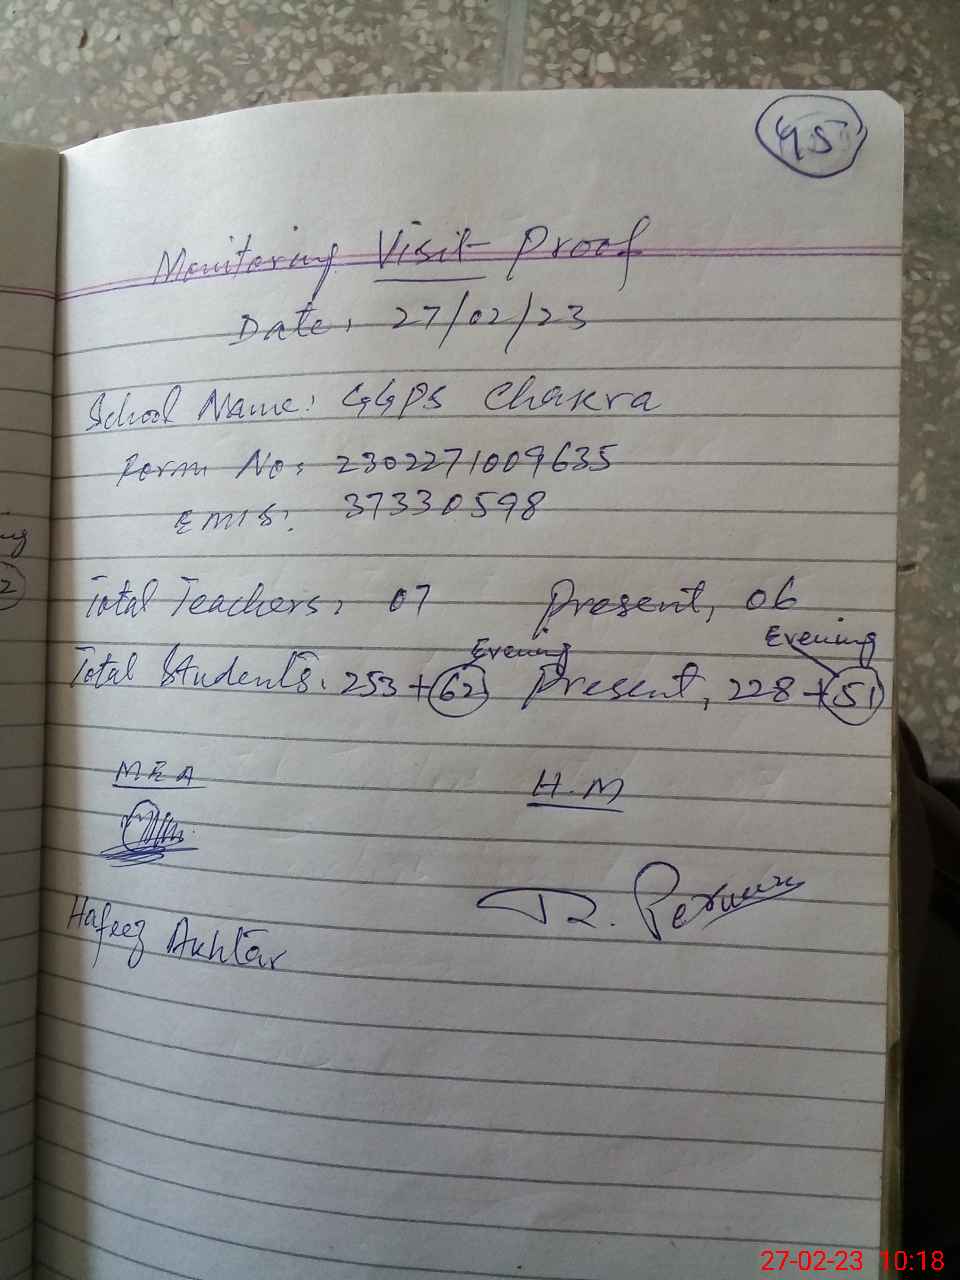 45
Monitoring Visit Proof
Date: 27/02/23
School Name: GGPS Chakra
Form No: 2302271009635
EMIS: 37330598
Total Teachers: 07 Present, 06
Evening Evening
Total Students: 253+62 Present, 228+51
MEA H.M
Hafeez Akhtar
27-02-23 10:18